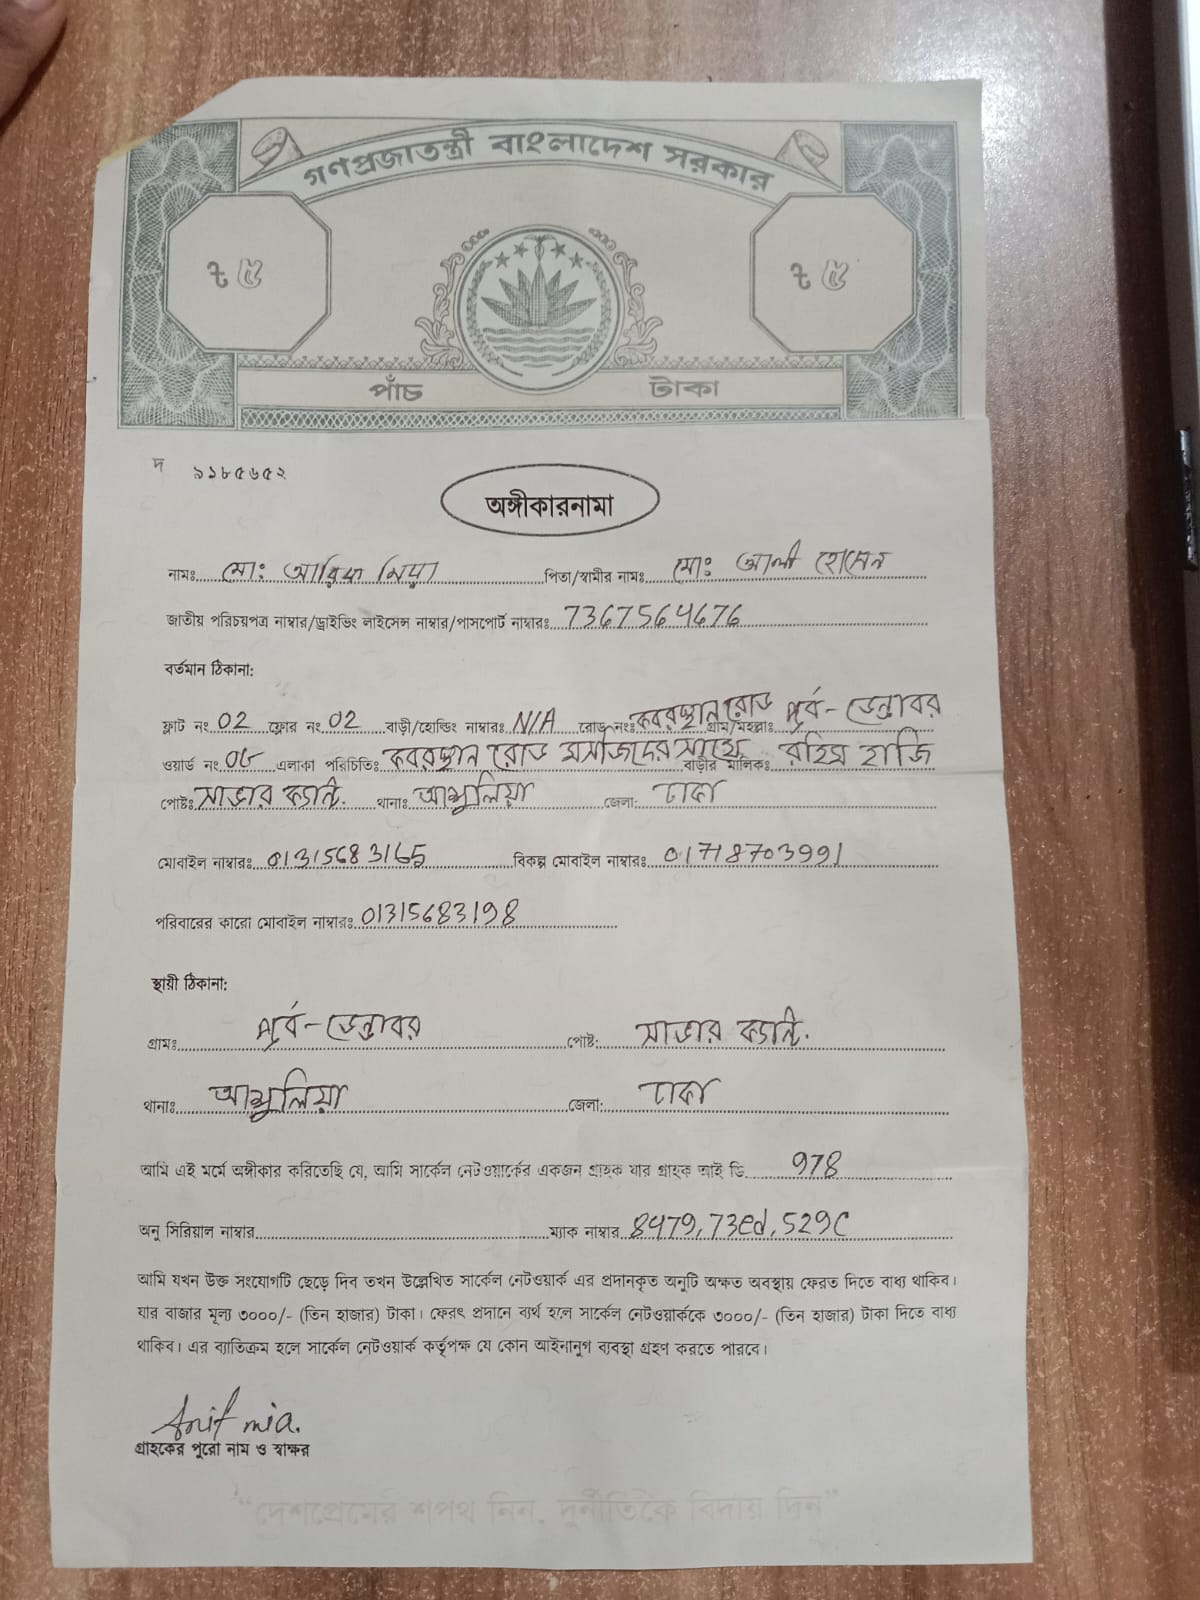 গণপ্রজাতন্ত্রী বাংলাদেশ সরকার
৳ ৫ ৳ ৫
পাঁচ টাকা
দ ৯১৮৫৬৫২
অঙ্গীকারনামা
নামঃ মোঃ আরিফ মিয়া পিতা/স্বামীর নামঃ মোঃ আলী হোসেন
জাতীয় পরিচয়পত্র নাম্বার/ড্রাইভিং লাইসেন্স নাম্বার/পাসপোর্ট নাম্বারঃ 7367564676
বর্তমান ঠিকানা:
ফ্লাট নং 02 ফ্লোর নং 02 বাড়ী/হোল্ডিং নাম্বারঃ N/A রোড নংঃ কবরস্থান রোড গ্রাম/মহল্লাঃ পূর্ব-ডেন্ডাবর
ওয়ার্ড নং এলাকা পরিচিতিঃ কবরস্থান রোড মসজিদের সাথে বাড়ীর মালিকঃ রহিম হাজি
পোষ্টঃ সাভার ক্যান্ট. থানাঃ আশুলিয়া জেলা: ঢাকা
মোবাইল নাম্বারঃ 01315683165 বিকল্প মোবাইল নাম্বারঃ 01718703991
পরিবারের কারো মোবাইল নাম্বারঃ 01315683198
স্থায়ী ঠিকানা:
গ্রামঃ পূর্ব-ডেন্ডাবর পোষ্ট: সাভার ক্যান্ট.
থানাঃ আশুলিয়া জেলা: ঢাকা
আমি এই মর্মে অঙ্গীকার করিতেছি যে, আমি সার্কেল নেটওয়ার্কের একজন গ্রাহক যার গ্রাহক আই ডি 978
অনু সিরিয়াল নাম্বার ম্যাক নাম্বার 8479,73ed,529C
আমি যখন উক্ত সংযোগটি ছেড়ে দিব তখন উল্লেখিত সার্কেল নেটওয়ার্ক এর প্রদানকৃত অনুটি অক্ষত অবস্থায় ফেরত দিতে বাধ্য থাকিব।
যার বাজার মূল্য ৩০০০/- (তিন হাজার) টাকা। ফেরৎ প্রদানে ব্যর্থ হলে সার্কেল নেটওয়ার্ককে ৩০০০/- (তিন হাজার) টাকা দিতে বাধ্য
থাকিব। এর ব্যাতিক্রম হলে সার্কেল নেটওয়ার্ক কর্তৃপক্ষ যে কোন আইনানুগ ব্যবস্থা গ্রহণ করতে পারবে।
Arif mia.
গ্রাহকের পুরো নাম ও স্বাক্ষর
“দেশপ্রেমের শপথ নিন, দুর্নীতিকে বিদায় দিন”